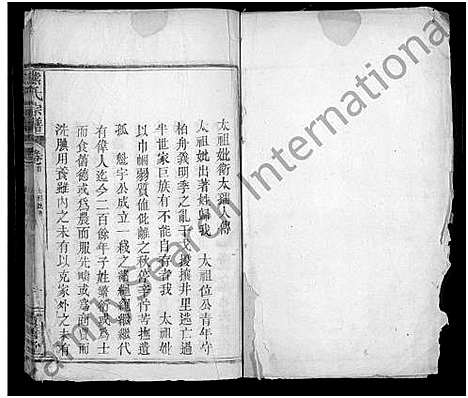 太祖妣衛太孺人傳
太祖妣出著姓歸我 太祖位公青年守
柏舟義明季之亂干戈擾攘井里逃亡過
半世家巨族有不能自存者我 太祖妣
以巾幗弱質值仳離之秋停辛佇苦撫遺
孤 魁宇公成立一綫之繩繩繼繼代
有偉人迄今二百餘年子姓繁衍或爲士
而食舊德或爲農而服先疇或爲而
洗腆用養雖內之未有以克家外之未有
熊氏宗譜
FamilySearch International